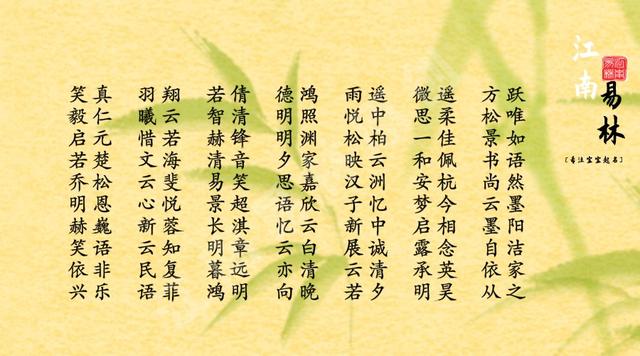 江南
易林
[专注宝宝起名]
笑真 羽翔 若倩 德鸿 雨遥 微遥 方跃
毅仁 曦云 智清 明照 悦中 思柔 松唯
启元 惜若 赫锋 明渊 松柏 一佳 景如
若楚 文海 清音 夕家 映云 和佩 书语
乔松 云斐 易笑 思嘉 汉洲 安杭 尚然
明恩 心悦 景超 语欣 子忆 梦今 云墨
赫巍 新蓉 长淇 忆云 新中 启相 墨阳
笑语 云知 明章 云白 展诚 露念 自洁
依非 民复 暮远 亦清 云清 承英 依家
兴乐 语菲 鸿明 向晚 若夕 明昊 从之